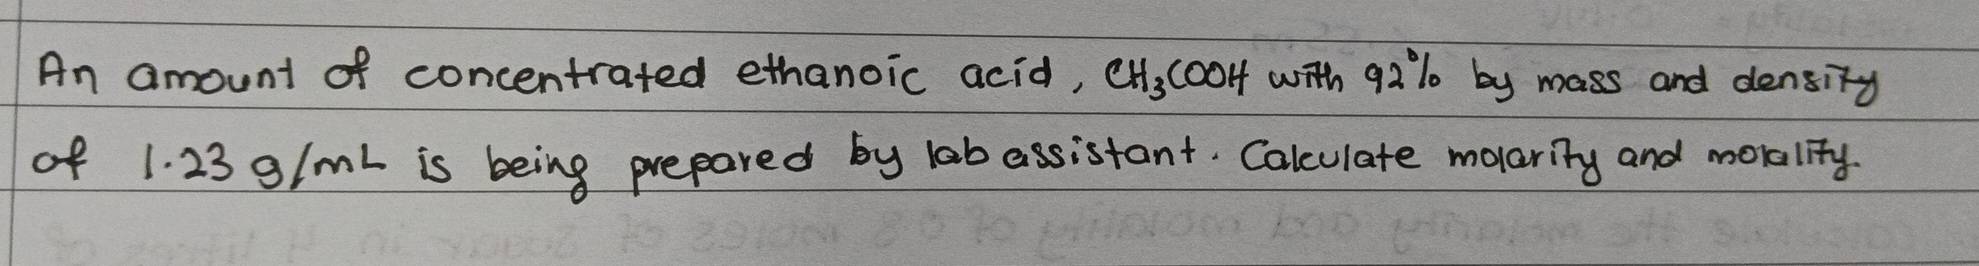 An amount of concentrated ethanoic acid, CH₃COOH with 92% by mass and density
of 1.23 g/mL is being prepared by lab assistant. Calculate molarity and molality.